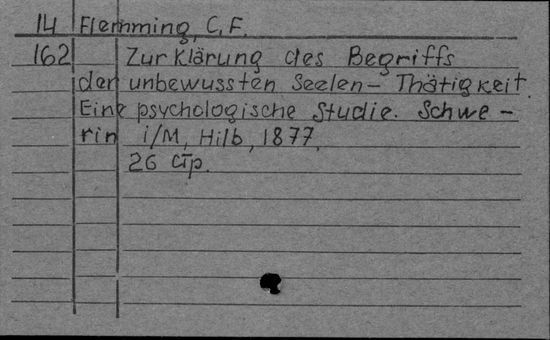 14 Flemming, C. F.
162 Zur Klärung des Begriffs
der unbewussten Seelen- Thätigkeit.
Eine psychologische Studie. Schwe-
rin i/M, Hilb, 1877.
26 стр.